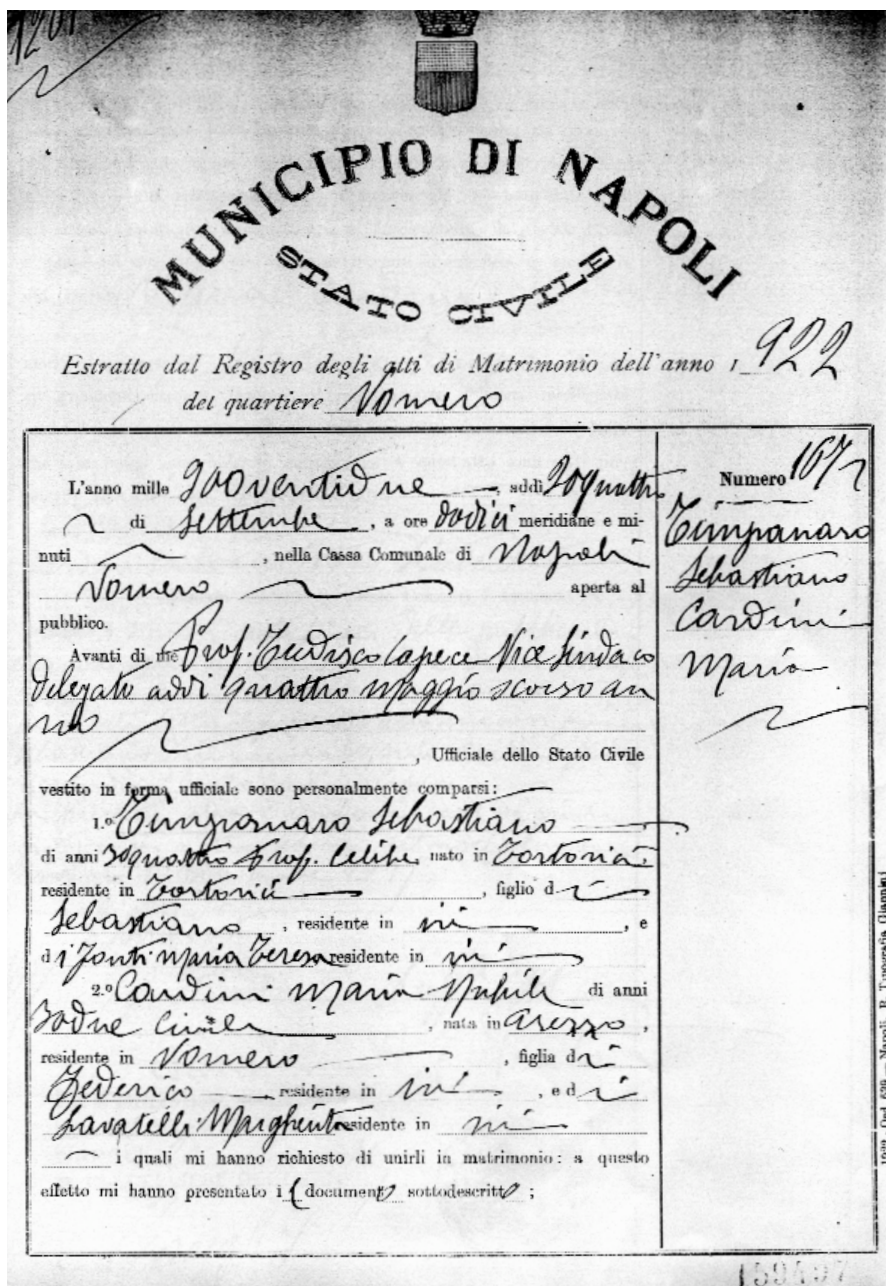 1201
MUNICIPIO DI NAPOLI
STATO CIVILE
Estratto dal Registro degli atti di Matrimonio dell'anno 1922
del quartiere Vomero
L'anno mille 900ventidue, addi 20quattro
di Settembre, a ore dodici meridiane e mi-
nuti , nella Cassa Comunale di Napoli
Vomero aperta al
pubblico.
Avanti di me Prof. Tudisco Capece Vice Sindaco
delegato addi quattro maggio scorso an
no
, Ufficiale dello Stato Civile
vestito in forma ufficiale sono personalmente comparsi:
1.º Timpanaro Sebastiano
di anni 30quattro Prof. Celibe nato in Tortorici,
residente in Tortorici , figlio di
Sebastiano , residente in ivi , e
di Fonti Maria Teresa residente in ivi
2.º Cardini Maria Nubile di anni
30due Civile , nata in Arezzo ,
residente in Vomero , figlia di
Federico residente in ivi , e di
Lavatelli Margherita residente in ivi
i quali mi hanno richiesto di unirli in matrimonio: a questo
effetto mi hanno presentato i documenti sottodescritti ;
Numero 167
Timpanaro
Sebastiano
Cardini
Maria
Napoli, R. Tipografia Giannini